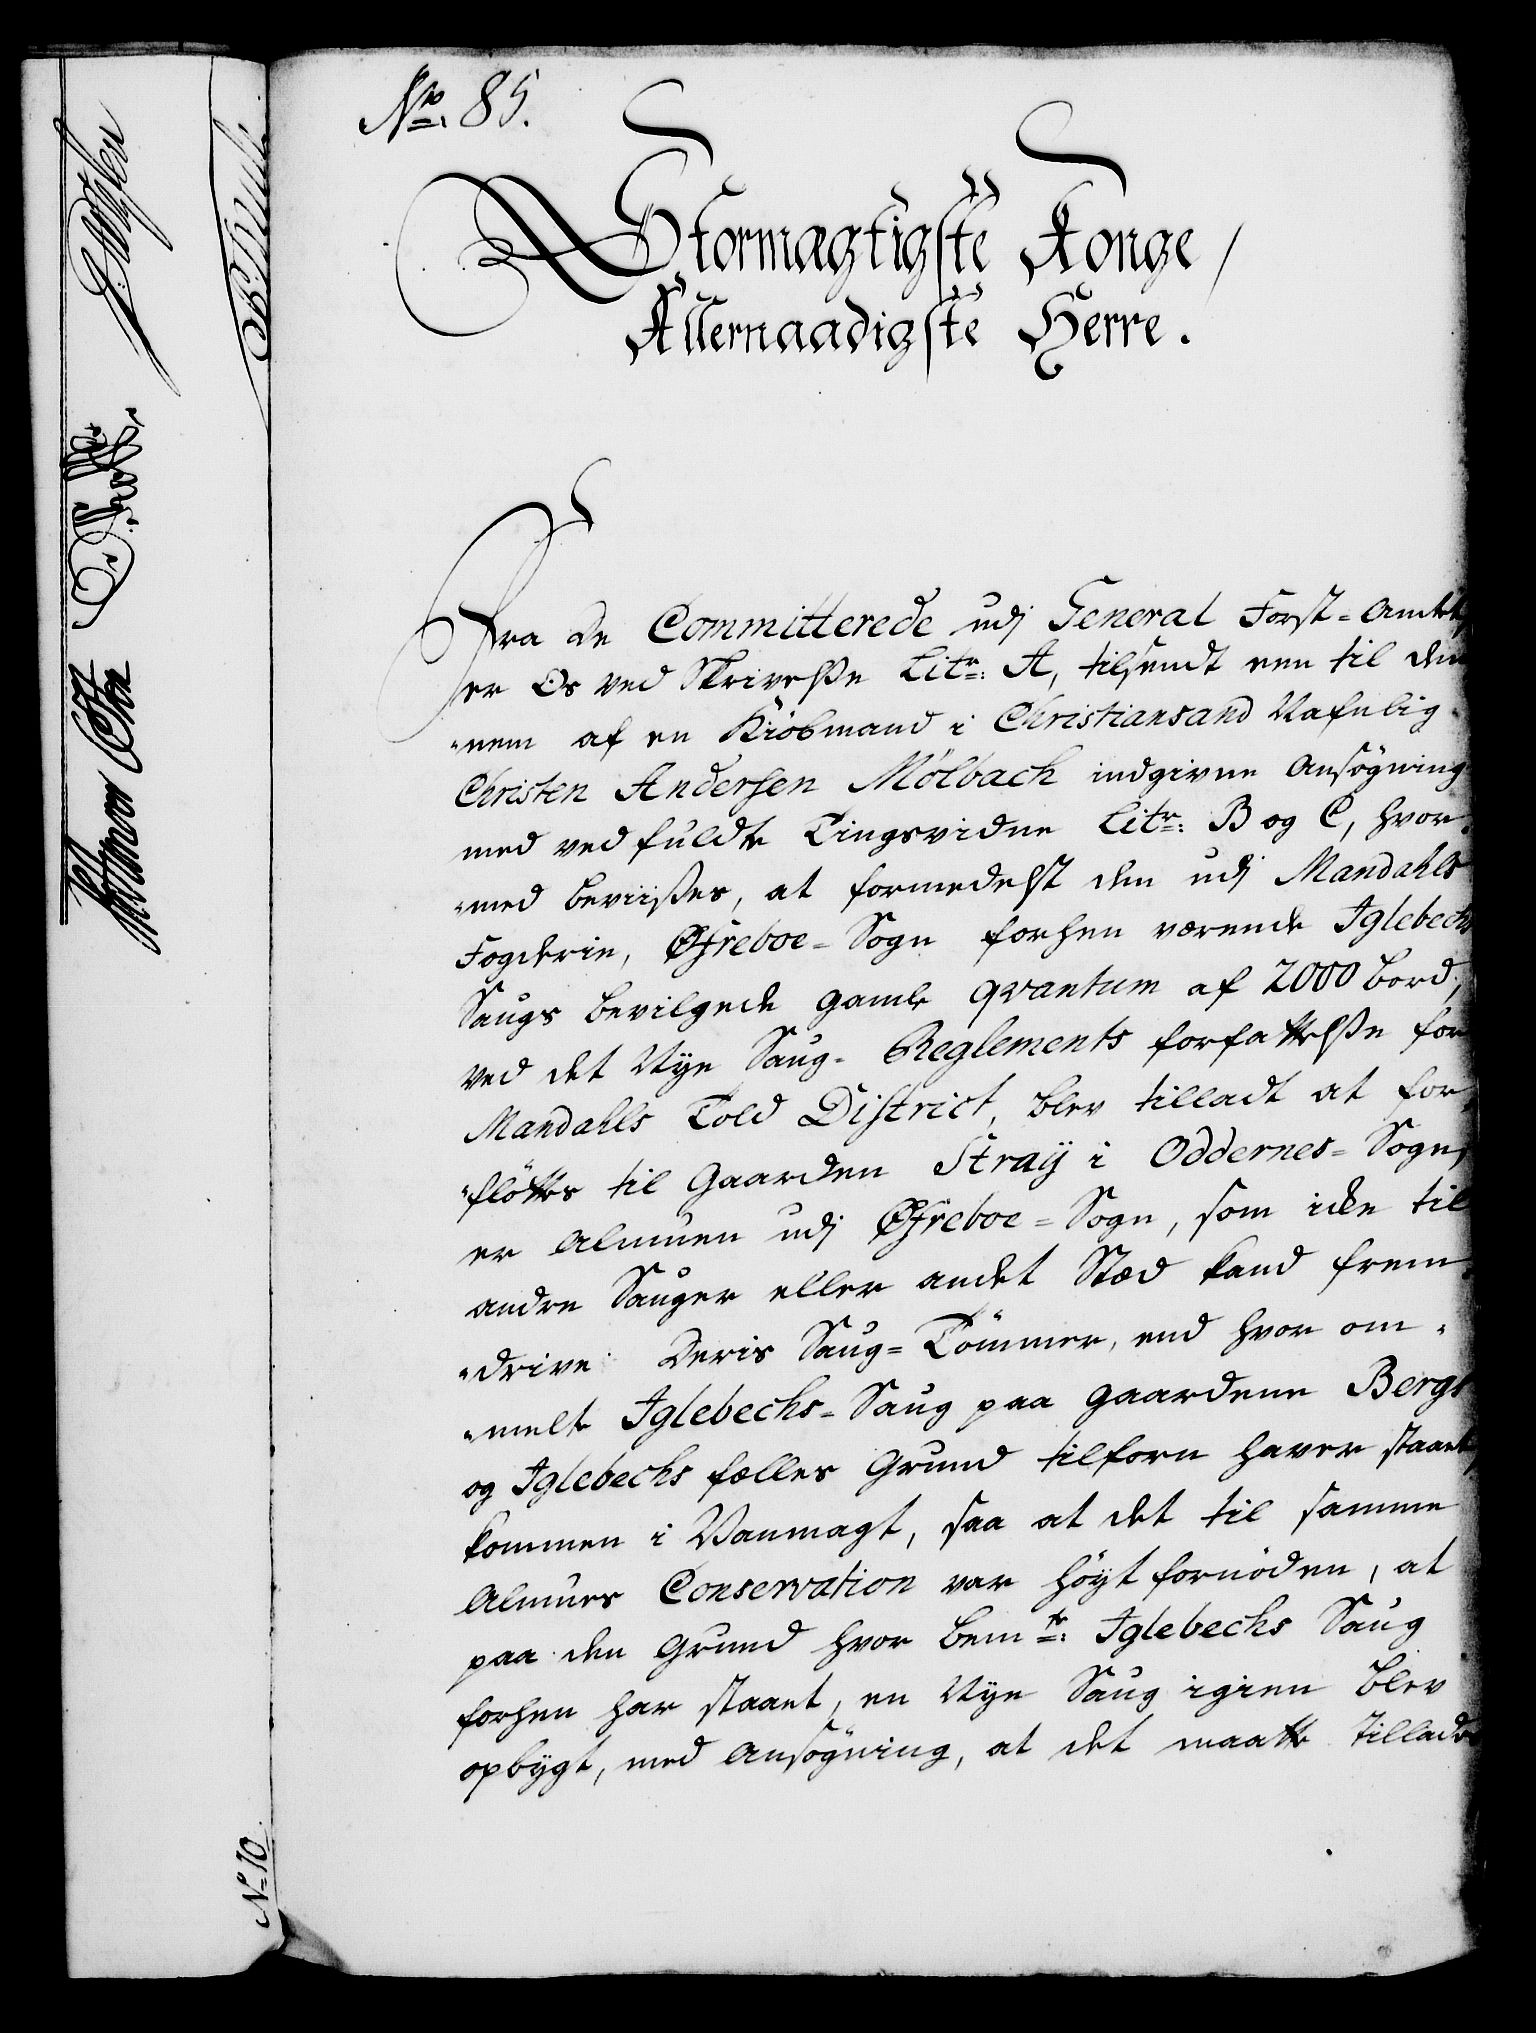 No. 85.
Stormægtigste Konge,
Allernaadigste Herre.
Fra de Committerede udj General Forst-Amtet,
er Os ved Skrivelsse Litr: A, tilsendt een til dem
-nem af en Kiøbmand i Christiansand Nafnlig
Christen Andersen Mölbach indgivne Ansøgning
med vedfuldte Tingsvidne Litr: B og C, hvor
-med beviisses, at formedelst den udj Mandahls
Fogderie, Øfreboe-Sogn forhen værende Iglebechs
Saugs bevilgede gamle qvantum af 2000 bord,
ved det Nye Saug-Reglements forfattelsse for
Mandahls Told District, blev tilladt at for
-fløttes til Gaarden Straÿ i Oddernes-Sogn,
er Almuen udj Øfreboe-Sogn, som icke til
andre Sauger eller andet Stæd kand frem
-drive deris Saug-Tömmer, end hvor om-
-melte Iglebechs-Saug paa gaardene Bergs
og Iglebechs fælles Grund tilforn haver staaet,
kommen i Vanmagt, saa at det til samme
Almues Conservation var høyt fornöden, at
paa den Grund hvor bemte: Iglebechs Saug
forhen har staaet, en Nye Saug igien blev
opbygt, med Ansøgning, at det maatte tillades
No 10.